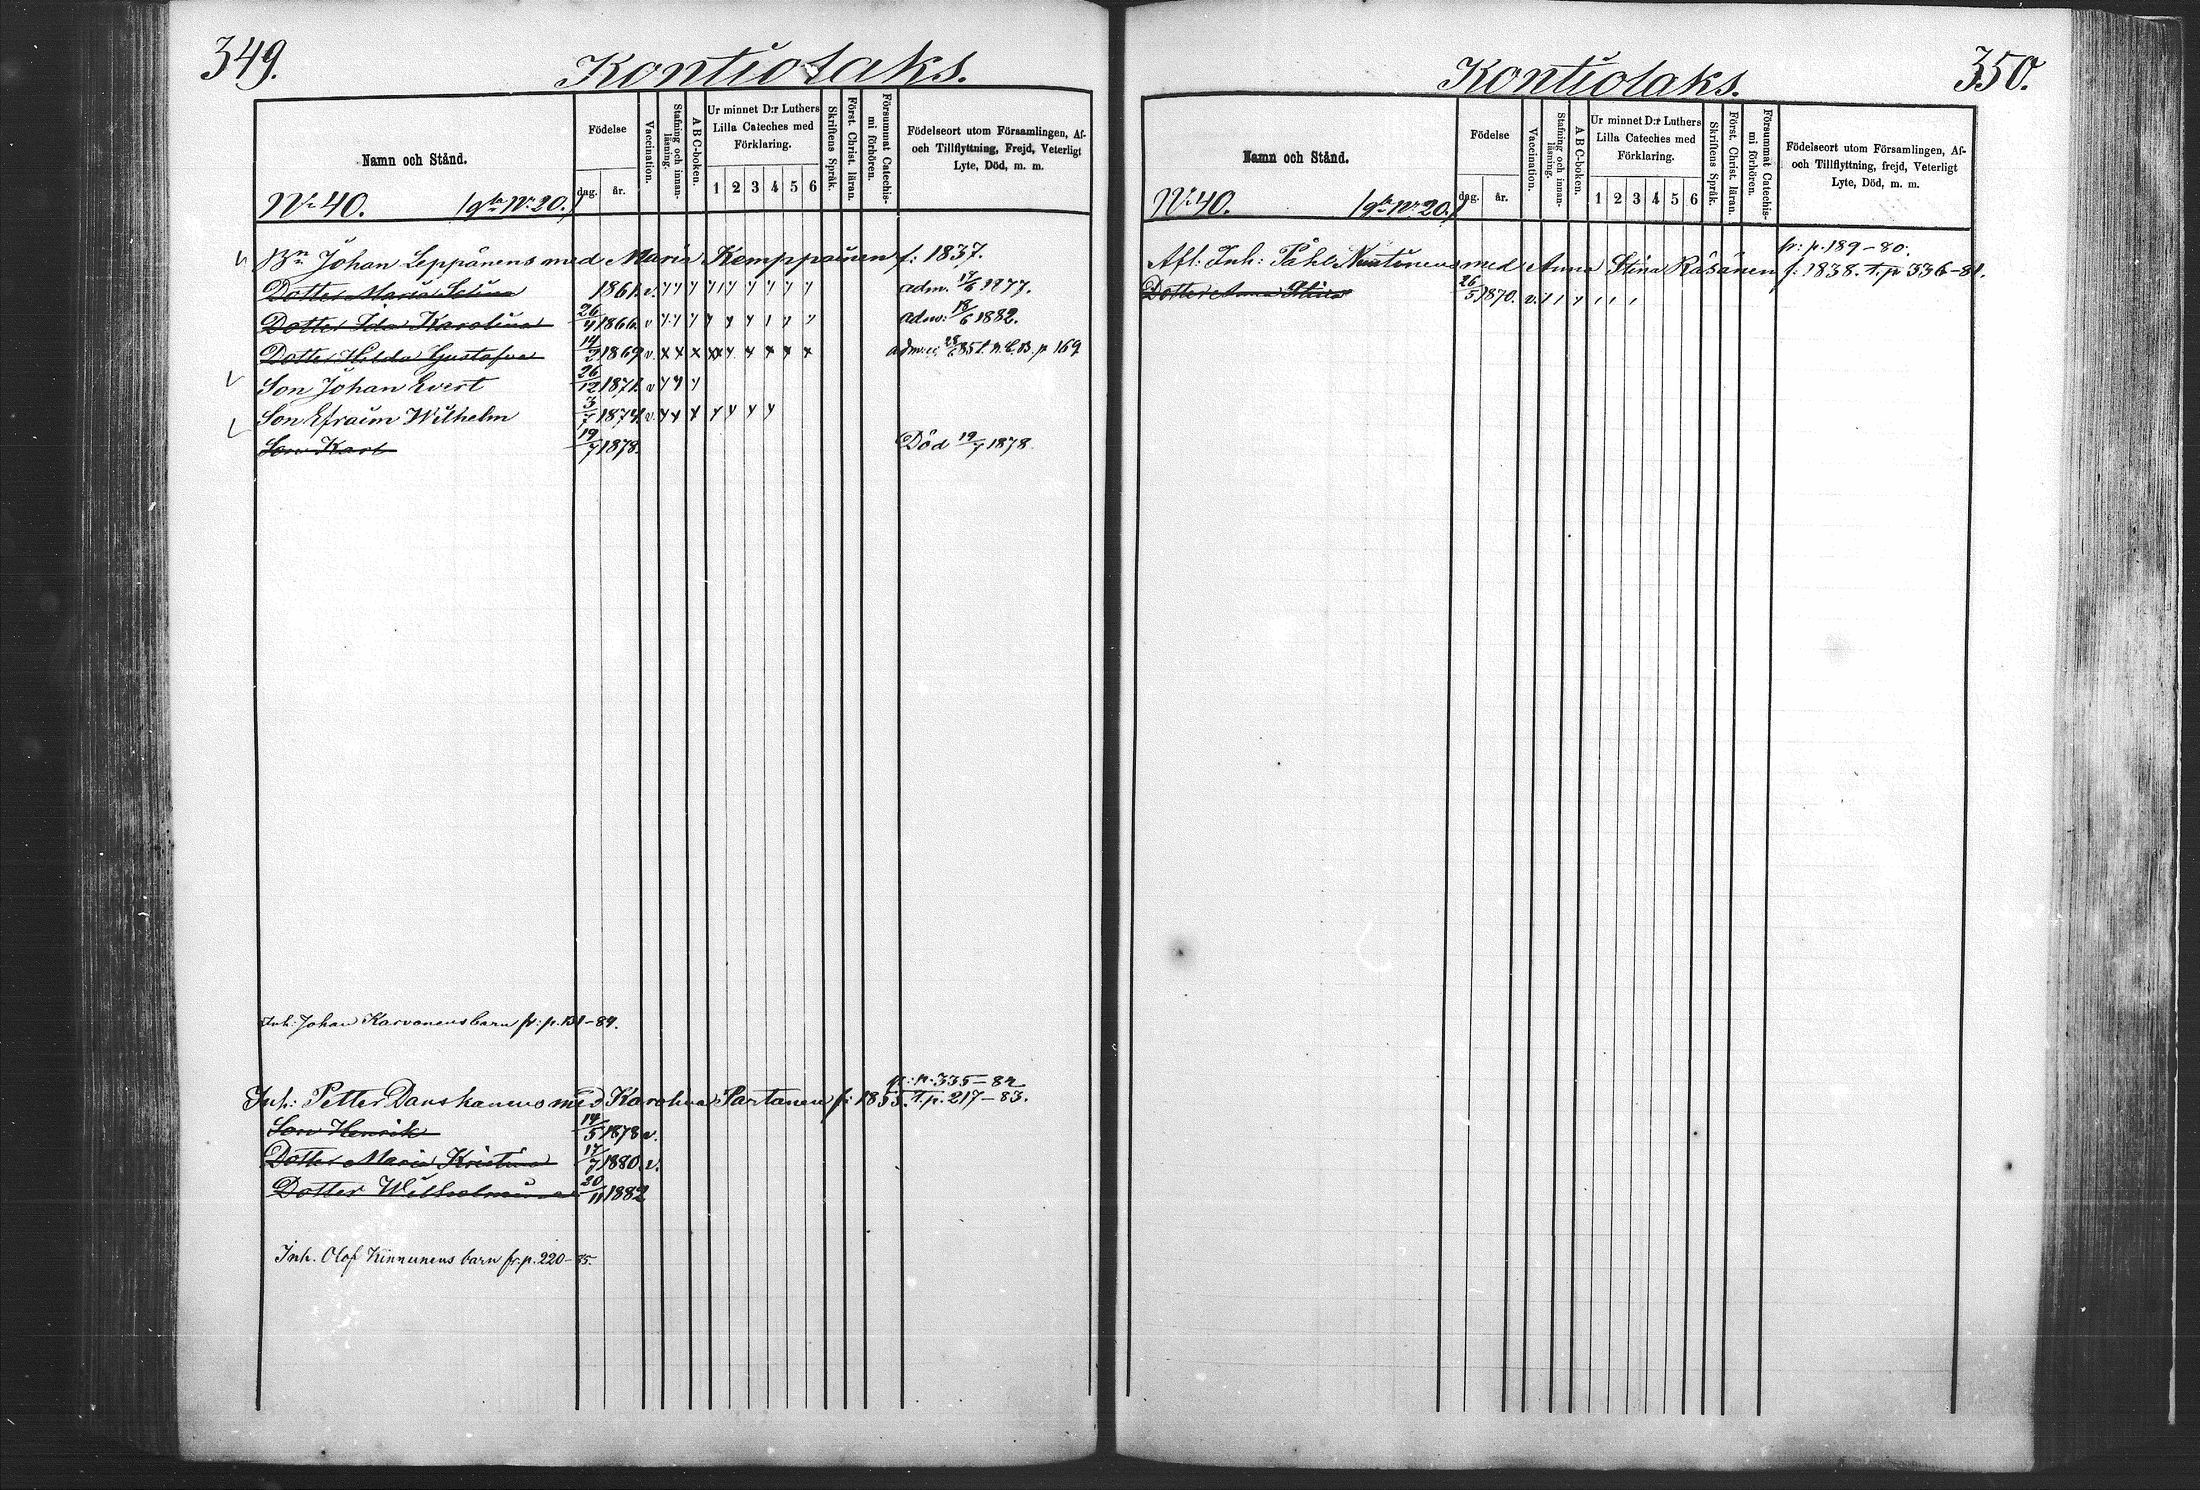 349.
Kontiolaks.
Namn och Stånd.
Födelse
dag. år.
Vaccination.
Stafning och innanläsning.
A B C-boken.
Ur minnet D:r Luthers Lilla Cateches med Förklaring.
1 2 3 4 5 6
Skriftens Språk.
Först. Christ. läran.
Försummat Catechismi förhören.
Födelseort utom Församlingen, Af- och Tillflyttning, Frejd, Veterligt Lyte, Död, m. m.
No 40. No 20.
Bn Johan Leppänens med Maria Kemppainen f: 1837.
Dotter Maria 1861. v. adm. 17/6 1877.
Dotter Ida Karolina 26/4 1866. v adm: 18/6 1882.
Dotter Hilda Gustafva 14/2 1869 v. 28/6 85 p 169
Son Johan Evert 26/12 1871. v
Son Efraim Wilhelm 3/7 1874. v.
Son Karl 19/7 1878. Död 19/7 1878.
Inh: Johan Karvonens barn fr: p. 131-84.
fr: p. 335-82
Inh: Petter Danskanens med Karolina Partanen f: 1855. T. p. 217-83.
Son Henrik 14/5 1878 v.
Dotter Maria Kristina 17/7 1880. v.
Dotter Wilhelmina 20/11 1882
Inh. Olof Kinnunens barn fr. p. 220-85.
350.
Kontiolaks.
Namn och Stånd.
Födelse
dag. år.
Vaccination.
Stafning och innanläsning.
A B C-boken.
Ur minnet D:r Luthers Lilla Cateches med Förklaring.
1 2 3 4 5 6
Skriftens Språk.
Först. Christ. läran.
Försummat Catechismi förhören.
Födelseort utom Församlingen, Af- och Tillflyttning, frejd, Veterligt Lyte, Död, m. m.
No 40. No 20.
fr: p. 189-80.
Afl. Inh: Påhl med Anna Stina Räsänen f: 1838. T. p 336-81.
Dotter Anna Stina 26/5 1870. v.